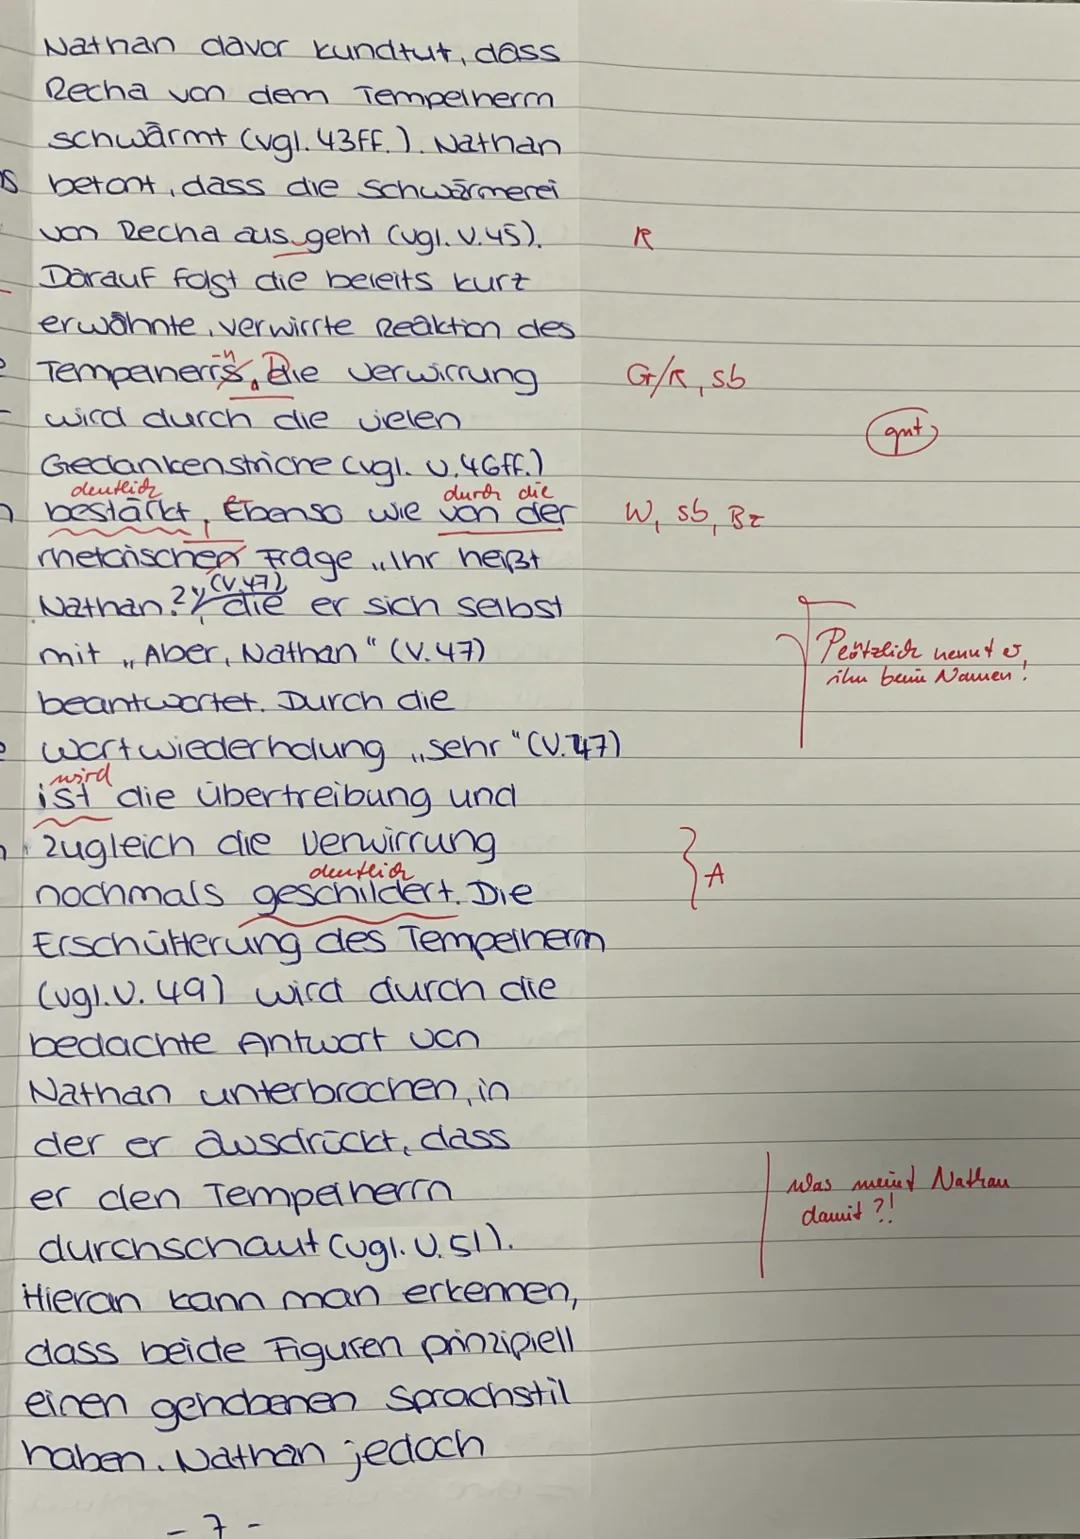 Nathan davor kundtut, dass
Recha von dem Tempelherrn
schwärmt (vgl. 43ff.). Nathan
betont, dass die Schwärmerei
von Recha aus geht (vgl. V.45). R
Darauf folgt die bereits kurz
erwähnte, verwirrte Reaktion des
-n
Tempelherrs. Die Verwirrung G/R, sb
wird durch die vielen
gut
Gedankenstriche (vgl. V.46ff.)
deutlich durch die
bestärkt, Ebenso wie von der W, sb, Bz
rhetorischen Frage „Ihr heißt
(V.47)
Nathan?", die er sich selbst
mit „Aber, Nathan" (V.47)
Plötzlich nennt er
ihn beim Namen!
beantwortet. Durch die
Wortwiederholung „sehr" (V.47)
wird
ist die Übertreibung und
zugleich die Verwirrung
deutlich
nochmals geschildert. Die
A
Erschütterung des Tempelherrn
(vgl. V. 49) wird durch die
bedachte Antwort von
Nathan unterbrochen, in
der er ausdrückt, dass
er den Tempelherrn
Was meint Nathan
damit?!
durchschaut (vgl. V. 51).
Hieran kann man erkennen,
dass beide Figuren prinzipiell
einen gehobenen Sprachstil
haben. Nathan jedoch
- 7 -